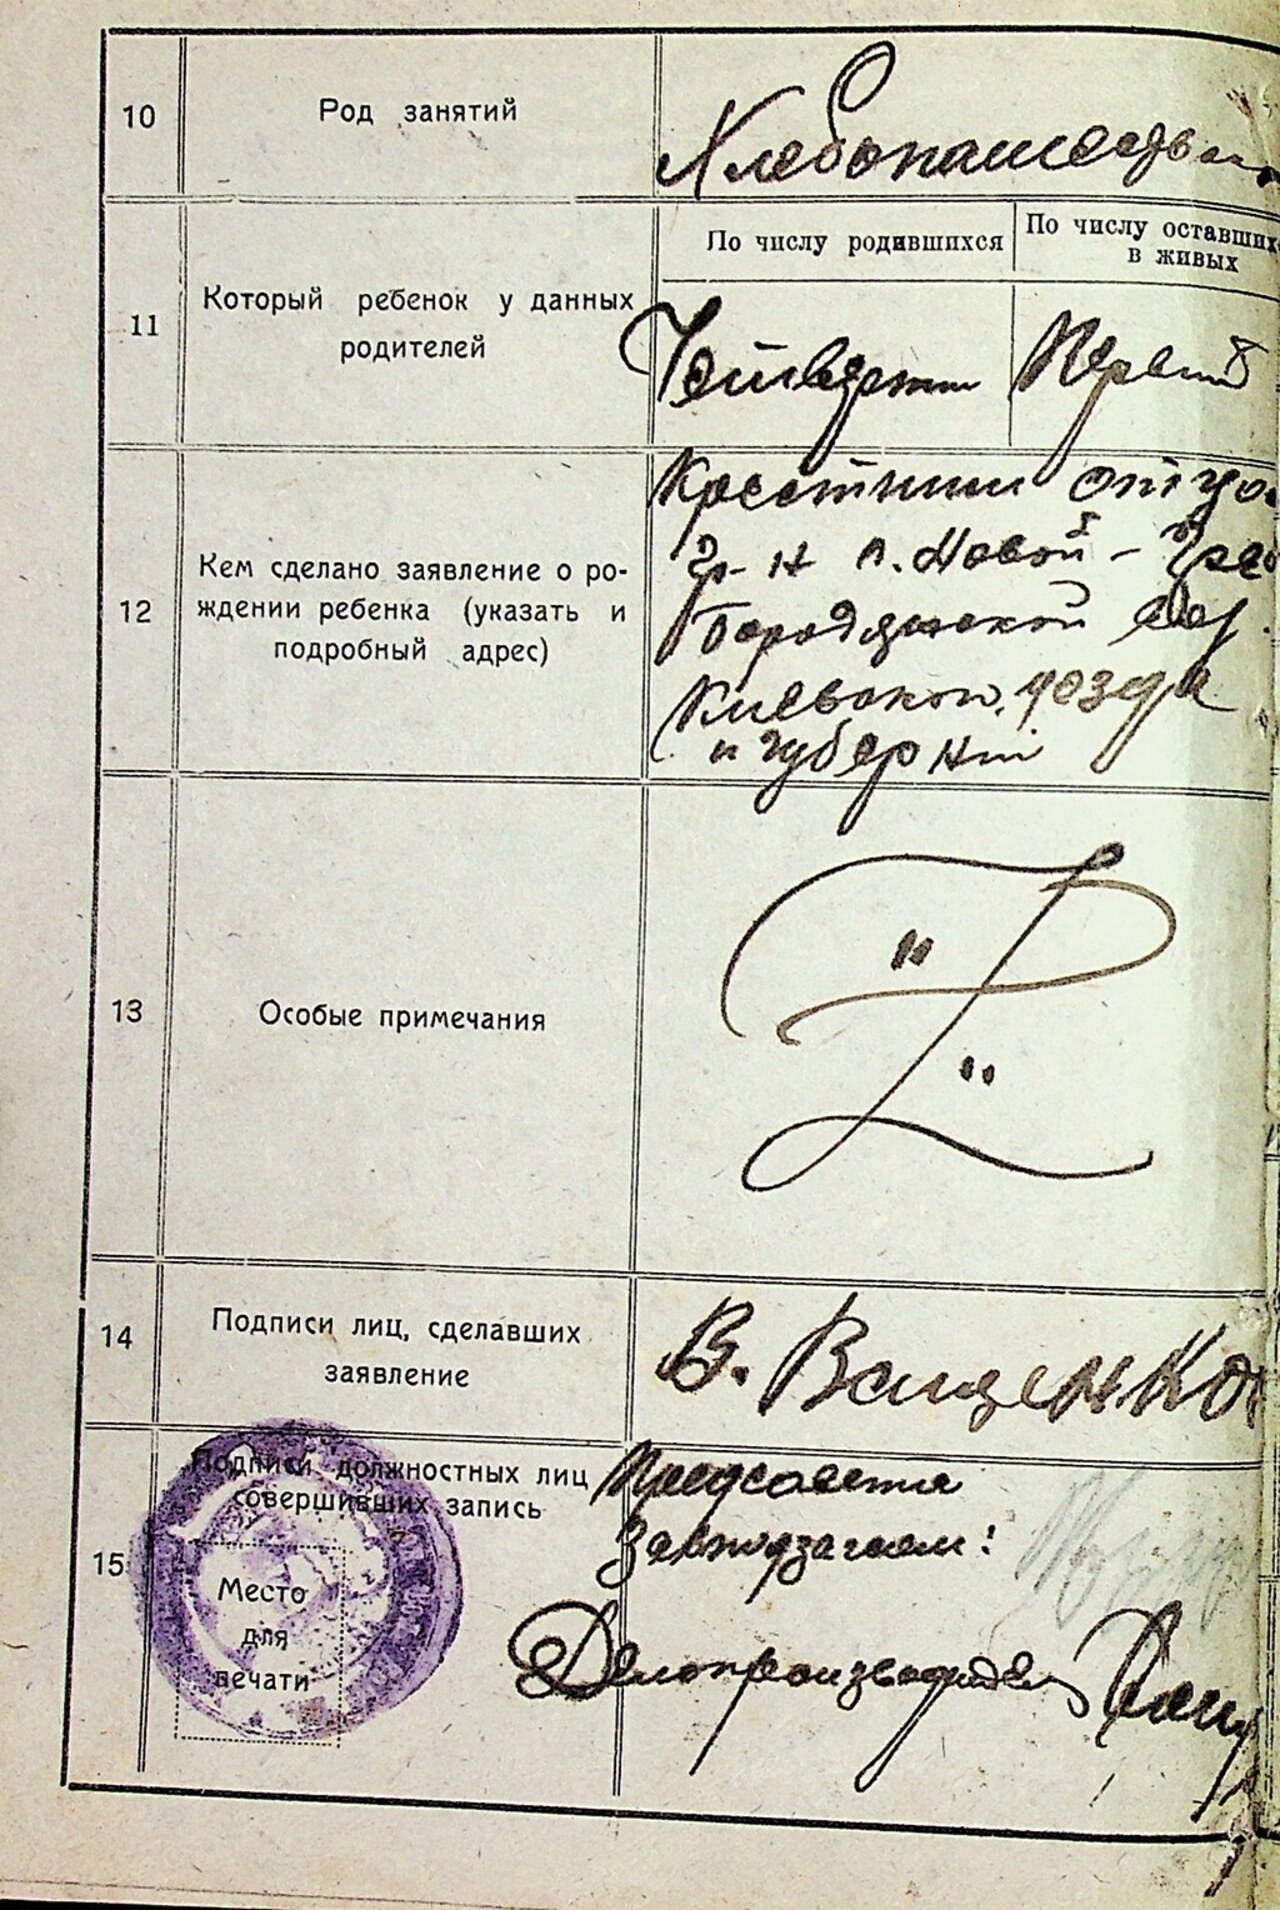 10
Род занятий
Хлебопашество
11
Который ребенок у данных
родителей
По числу родившихся
По числу оставших
в живых
Четвертый
Первый
12
Кем сделано заявление о ро-
ждении ребенка (указать и
подробный адрес)
отцо
гр-н с. Новой-Гре
Бородянской вол.
Киевской, уезда
и губернии
13
Особые примечания
14
Подписи лиц, сделавших
заявление
В. Ващенко
15
Подписи должностных лиц
совершивших запись
Место
для
печати
Завподзагсом:
Делопроизводитель